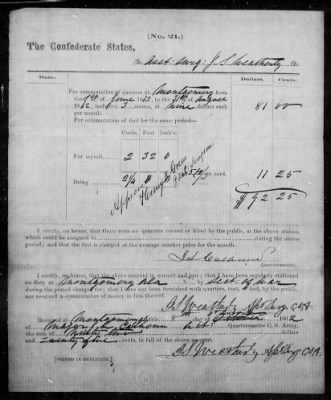 [No. 21.]
The Confederate States,
To Asst. Surg. J. S. Weatherly Dr.
Date. Dollars. Cents.
For commutation of quarters at Montgomery from
the 1st June 1862, to the 31st August
1862, 3 rooms, at nine dollars each
per month. 81 00
For commutation of fuel for the same period—
Cords. Feet. Inch's.
For myself, 2 32 0
Being 2 2/8 per cord. 11 25
$ 92 25
Approved
I certify, on honor, that there were no quarters owned or hired by the public, at the above station
which could be assigned to during the above
period; and that the fuel is charged at the average market price for the month.
Quartermaster.
I certify, on honor, that the above account is correct and just; that I have been regularly stationed
on duty at Montgomery Ala by Sect. of War
during the period charged for; that I have not been furnished with quarters, rent, or fuel, by the public,
nor received a commutation of money in lieu thereof.
Received at Montgomery 1862
of Major Calhoun Quartermaster C. S. Army,
the sum of Ninety two dollars
and Twenty five cents.
[SIGNED IN DUPLICATE.]